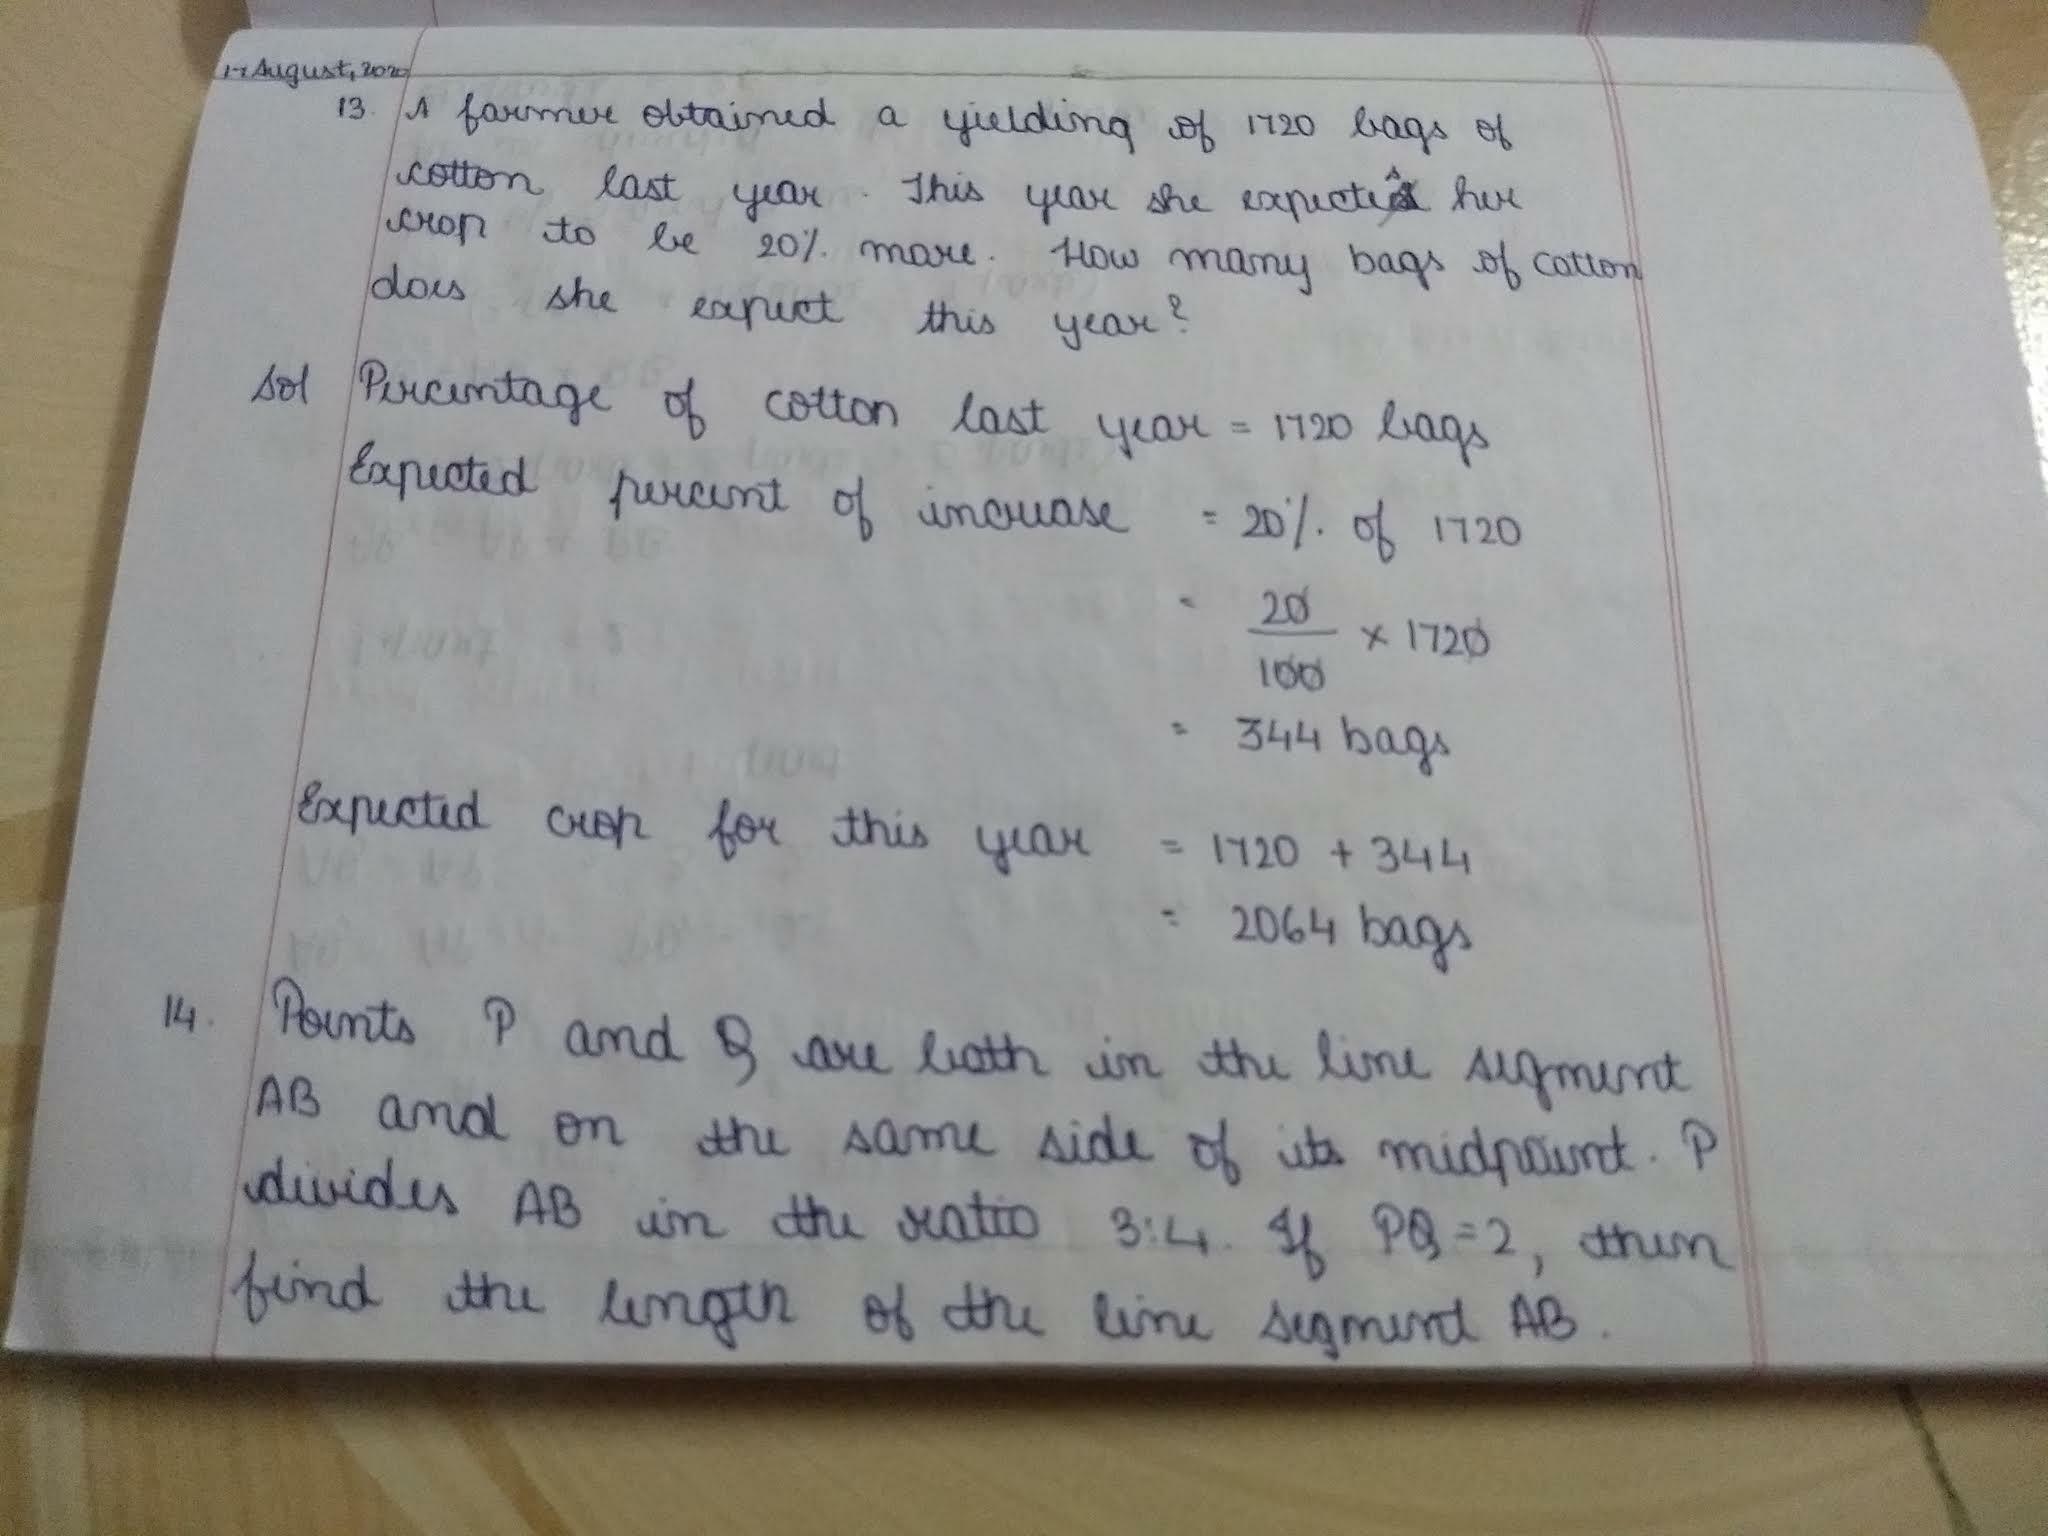 17 August, 2020
13. A farmer obtained a yielding of 1720 bags of
cotton last year. This year she expects her
crop to be 20% more. How many bags of cotton
does she expect this year?
Sol Percentage of cotton last year = 1720 bags
Expected percent of increase = 20% of 1720
= 20/100 × 1720
= 344 bags
Expected crop for this year = 1720 + 344
= 2064 bags
14. Points P and Q are both in the line segment
AB and on the same side of its midpoint. P
divides AB in the ratio 3:4. If PQ=2, then
find the length of the line segment AB.